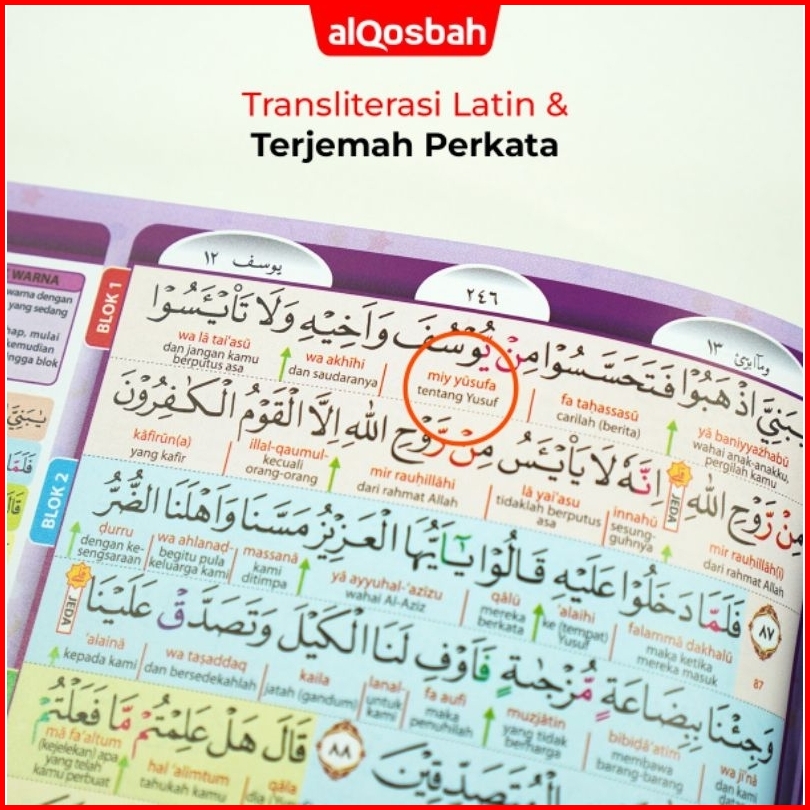 alQosbah
Transliterasi Latin &
Terjemah Perkata
يوسف ١٢
٢٤٦
وماابرئ ١٣
WARNA
warna dengan
yang sedang
mulai
kemudian
hingga blok
BLOK 1
يٰبَنِيَّ اذْهَبُوْا فَتَحَسَّسُوْا مِنْ يُّوْسُفَ وَاَخِيْهِ وَلَا تَا۟يْـَٔسُوْا
yā baniyyażhabū fa taḥassasū miy yūsufa wa akhīhi wa lā tai'asū
wahai anak-anakku, pergilah kamu carilah (berita) tentang Yusuf dan saudaranya dan jangan kamu berputus asa
مِنْ رَّوْحِ اللّٰهِ اِنَّهٗ لَا يَا۟يْـَٔسُ مِنْ رَّوْحِ اللّٰهِ اِلَّا الْقَوْمُ الْكٰفِرُوْنَ
JEDA
mir rauḥillāh(i) innahū lā yai'asu mir rauḥillāhi illal-qaumul- kāfirūn(a)
dari rahmat Allah sesung-guhnya tidaklah berputus asa dari rahmat Allah kecuali orang-orang yang kafir
BLOK 2
٨٧
87
فَلَمَّا دَخَلُوْا عَلَيْهِ قَالُوْا يٰٓاَيُّهَا الْعَزِيْزُ مَسَّنَا وَاَهْلَنَا الضُّرُّ
falammā dakhalū 'alaihi qālū yā ayyuhal-'azīzu massanā wa ahlanaḍ- ḍurru
maka ketika mereka masuk ke (tempat) Yusuf mereka berkata wahai Al-Aziz kami ditimpa begitu pula keluarga kami dengan ke-sengsaraan
وَجِئْنَا بِبِضَاعَةٍ مُّزْجٰىةٍ فَاَوْفِ لَنَا الْكَيْلَ وَتَصَدَّقْ عَلَيْنَا
JEDA
wa ji'nā bibiḍā'atim muzjātin fa aufi lanal- kaila wa taṣaddaq 'alainā
dan kami datang membawa barang-barang yang tidak berharga maka penuhilah untuk kami jatah (gandum) dan bersedekahlah kepada kami
الْمُتَصَدِّقِيْنَ
٨٨
قَالَ هَلْ عَلِمْتُمْ مَّا فَعَلْتُمْ
qāla hal 'alimtum mā fa'altum
dia tahukah kamu (kejelekan) apa yang telah kamu perbuat